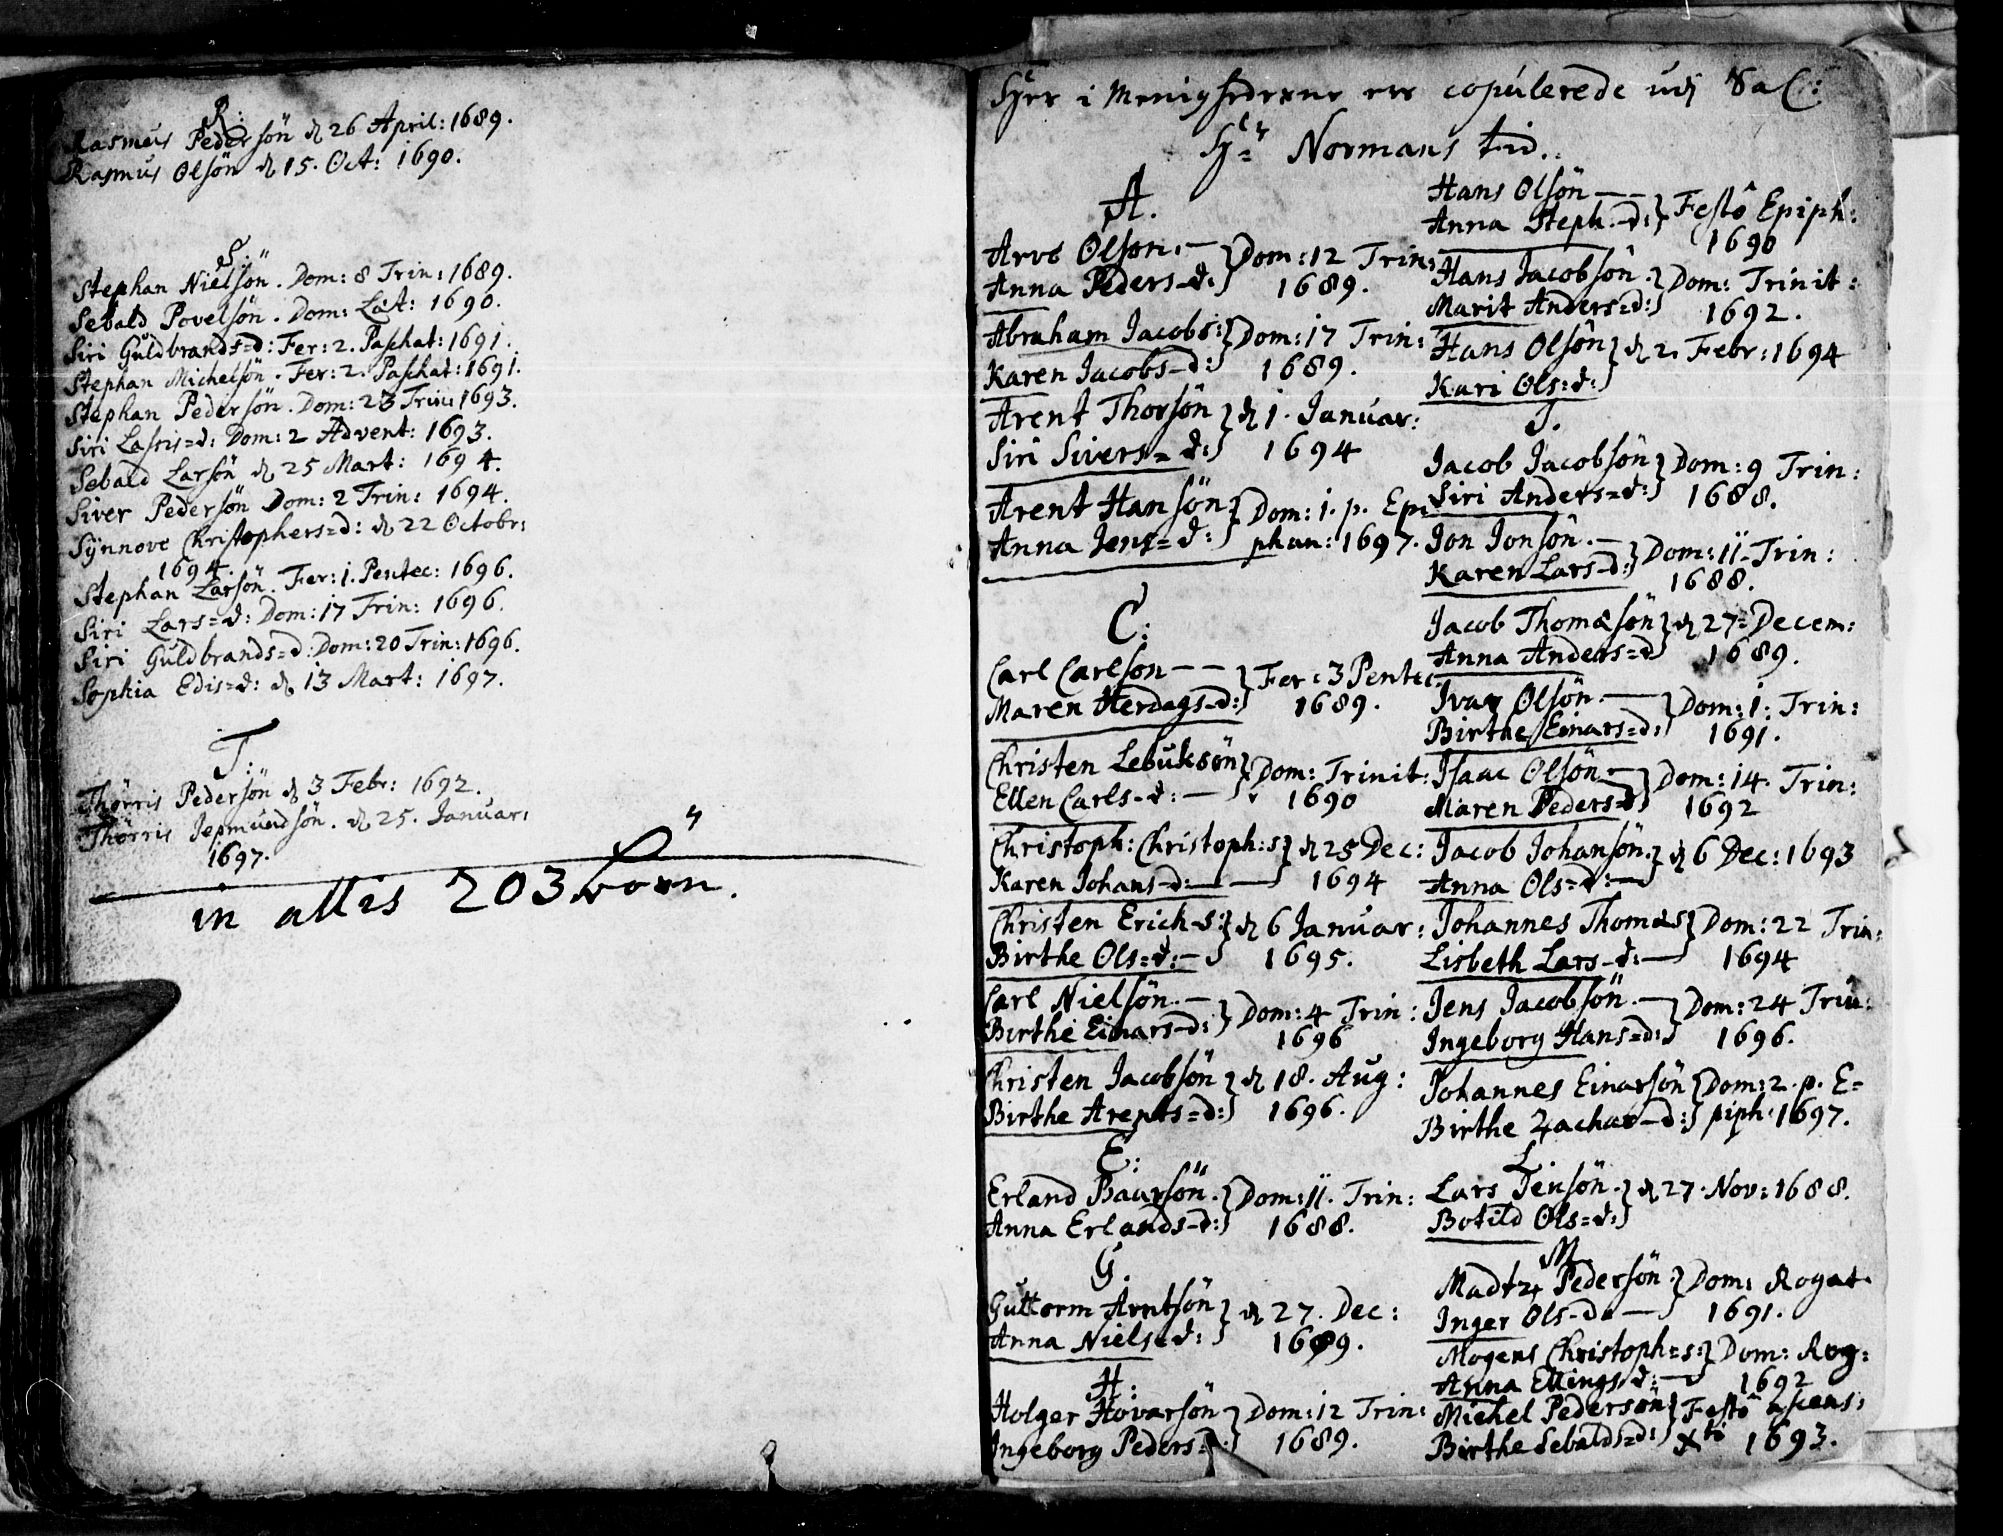 R:
Rasmus Pedersön d 26 April: 1689.
Rasmus Olsön d 15. Oct: 1690.
S:
Stephan Nielsön. Dom: 8 Trin: 1689.
Sebald Povelsön. Dom: Læt: 1690.
Siri Guldbrands=d: Fer: 2. Paschat: 1691.
Stephan Michelsön. Fer: 2. Paschat: 1691.
Stephan Pedersön. Dom: 23 Trin: 1693.
Siri Lassis=d: Dom: 2 Advent: 1693.
Sebald Larsön d 25 Mart: 1694.
Siver Pedersön Dom: 2 Trin: 1694.
Synnove Christophers=d: d 22 Octobr:
1694
Stephan Larsön. Fer: 1. Pentec: 1696.
Siri Lars=d: Dom: 17 Trin: 1696.
Siri Guldbrands=d: Dom: 20 Trin: 1696.
Sophia Edis=d: d 13 Mart: 1697.
T:
Thørris Pedersön d 3 Febr: 1692.
Thørris Jepmundsön. d 25. Januar:
1697.
in alles 203 börn.
Her i Menighederne ere copulerede udj Sal:
Hr Normans tid.
A.
Arve Olson. — } Dom: 12 Trin:
Anna Peders-d: } 1689.
Abraham Jacobs: } Dom: 17 Trin:
Karen Jacobs-d: } 1689.
Arent Thorsön } d 1. Januar:
Siri Sivers=d: } 1694
Arent Hansön } Dom: 1. p. Epi
Anna Jens=d: } phan: 1697.
C:
Carl Carlson — — } Fer: 3 Pentec
Maren Herdags-d: } 1689.
Christen Lebuksön } Dom: Trinit:
Ellen Carls-d: — } 1690
Christoph: Christoph: s } d 25 Dec:
Karen Johans-d: — — } 1694
Christen Erick-s: } d 6 Januar:
Birthe Ols=d: — } 1695.
Carl Nielsön. — } Dom: 4 Trin:
Birthe Einars-d: } 1696
Christen Jacobsön } d 18. Aug:
Birthe Arents=d: } 1696.
E:
Erland Baarsön. } Dom: 11. Trin:
Anna Erlands-d: } 1688.
G
Guttorm Arntsön } d 27. Dec:
Anna Niels=d: } 1689.
H:
Holger Hovarsön } Dom: 12 Trin:
Ingeborg Peders=d: } 1689.
Hans Olsön — — } Festô Epiph:
Anna Steph.-d: } 1690
Hans Jacobsön. } Dom: Trinit:
Marit Anders=d: } 1692.
Hans Olsön } d 2. Febr: 1694
Kari Ols=d: }
J.
Jacob Jacobsön } Dom: 9 Trin:
Siri Anders=d: } 1688.
Jon Jonsön. — } Dom: 11. Trin:
Karen Lars-d: } 1688.
Jacob Thomæsön } d 27=Decem:
Anna Anders=d } 1689.
Ivar Olsön. — } Dom: 1. Trin:
Birthe Einars=d: } 1691.
Isaac Olsön — } Dom: 14. Trin:
Maren Peders=d } 1692
Jacob Johansön. } d 6 Dec: 1693
Anna Ols=d: — }
Johannes Thomæs } Dom: 22 Trin:
Lisbeth Lars-d: — } 1694
Jens Jacobsön. — } Dom: 24 Trin:
Ingeborg Hans=d: } 1696.
Johannes Einarsön } Dom: 2. p. E=
Birthe Zachar-d: } piph: 1697.
L
Lars Jensön. } d 27. Nov: 1688.
Botild Ols=d: }
M
Madtz Pedersön } Dom: Rogat.
Inger Ols-d: — } 1691.
Mogens Christoph=s: } Dom: Rog:
Anna Ellings-d: — } 1692
Michel Pedersön } Festô Ascens:
Birthe Sebalds=d: } Xti 1693.